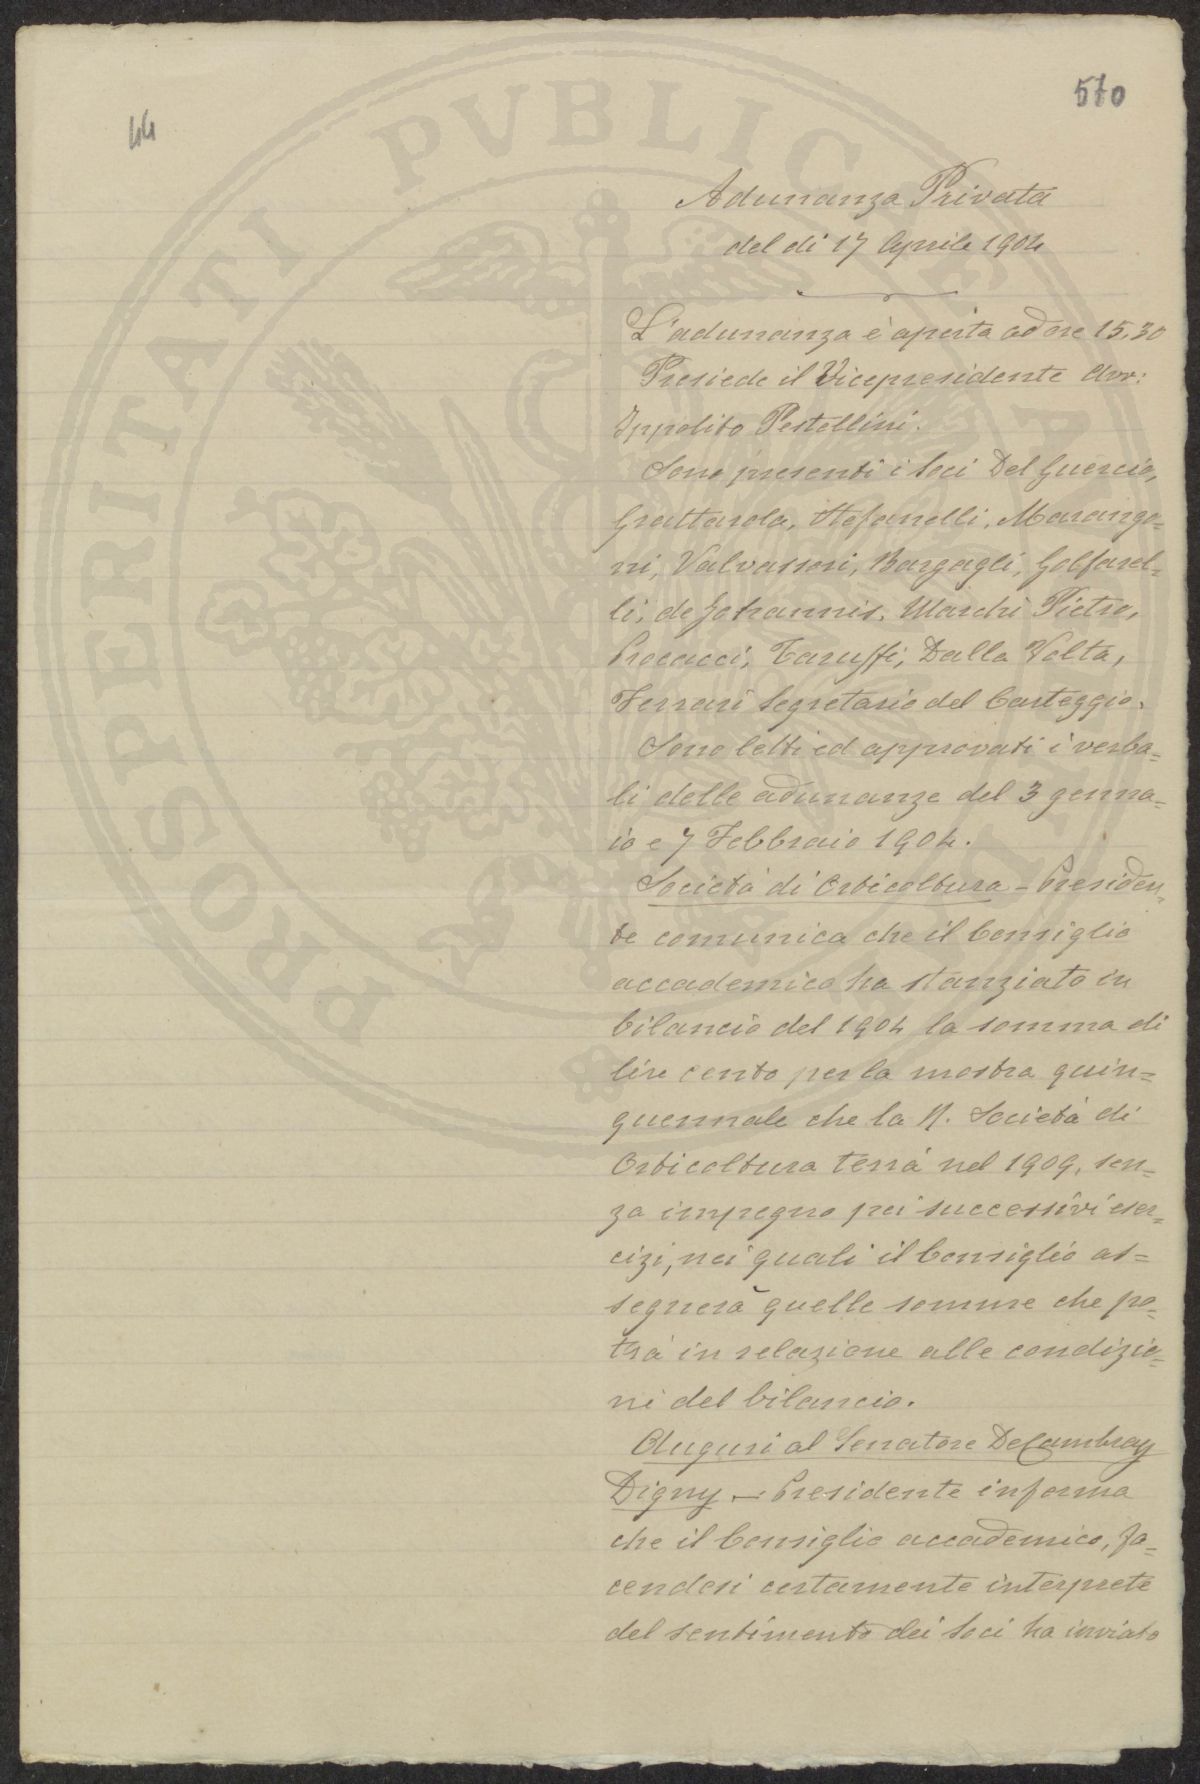 44
570
Adunanza Privata
del dì 17 Aprile 1904
L'adunanza è aperta ad ore 15,30
Presiede il Vicepresidente Avv:
Ippolito Pestellini.
Sono presenti i Soci Del Guercio,
Grattarola, Stefanelli, Marango=
ni, Valvassori, Bargagli, Golfarel=
li, de Johannis, Marchi Pietro,
Procacci, Taruffi, Dalla Volta,
Ferrari Segretario del Carteggio.
Sono letti ed approvati i verba=
li delle adunanze del 3 genna=
io e 7 Febbraio 1904.
Società di Orticoltura - Presiden=
te comunica che il Consiglio
accademico ha stanziato in
bilancio del 1904 la somma di
lire cento per la mostra quin=
quennale che la R. Società di
Orticoltura terrà nel 1909, sen=
za impegno pei successivi eser=
cizi, nei quali il Consiglio as=
segnerà quelle somme che po=
trà in relazione alle condizio=
ni del bilancio.
Auguri al Senatore De Cambray
Digny - Presidente informa
che il Consiglio accademico, fa=
cendosi certamente interprete
del sentimento dei Soci ha inviato
PROSPERITATI PVBLICAE AVGENDAE